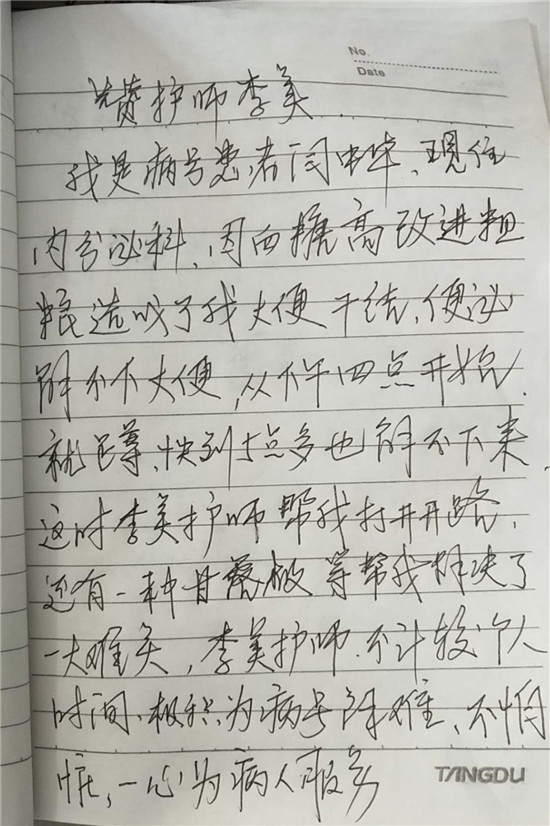 No.
Date
赞护师李美
我是病号患者闫中华、现住
内分泌科、因血糖高改进粗
粮造成了我大便干结、便泌
解不下大便,从下午四点开始.
就已蹲、快到5点多也解不下来.
这时李美护师帮我打开开路、
还有一种甘 等帮我解决了
一大难关,李美护师.不计较个人
时间、极积为病号解难、不怕
忙,一心为病人服务
TANGDU